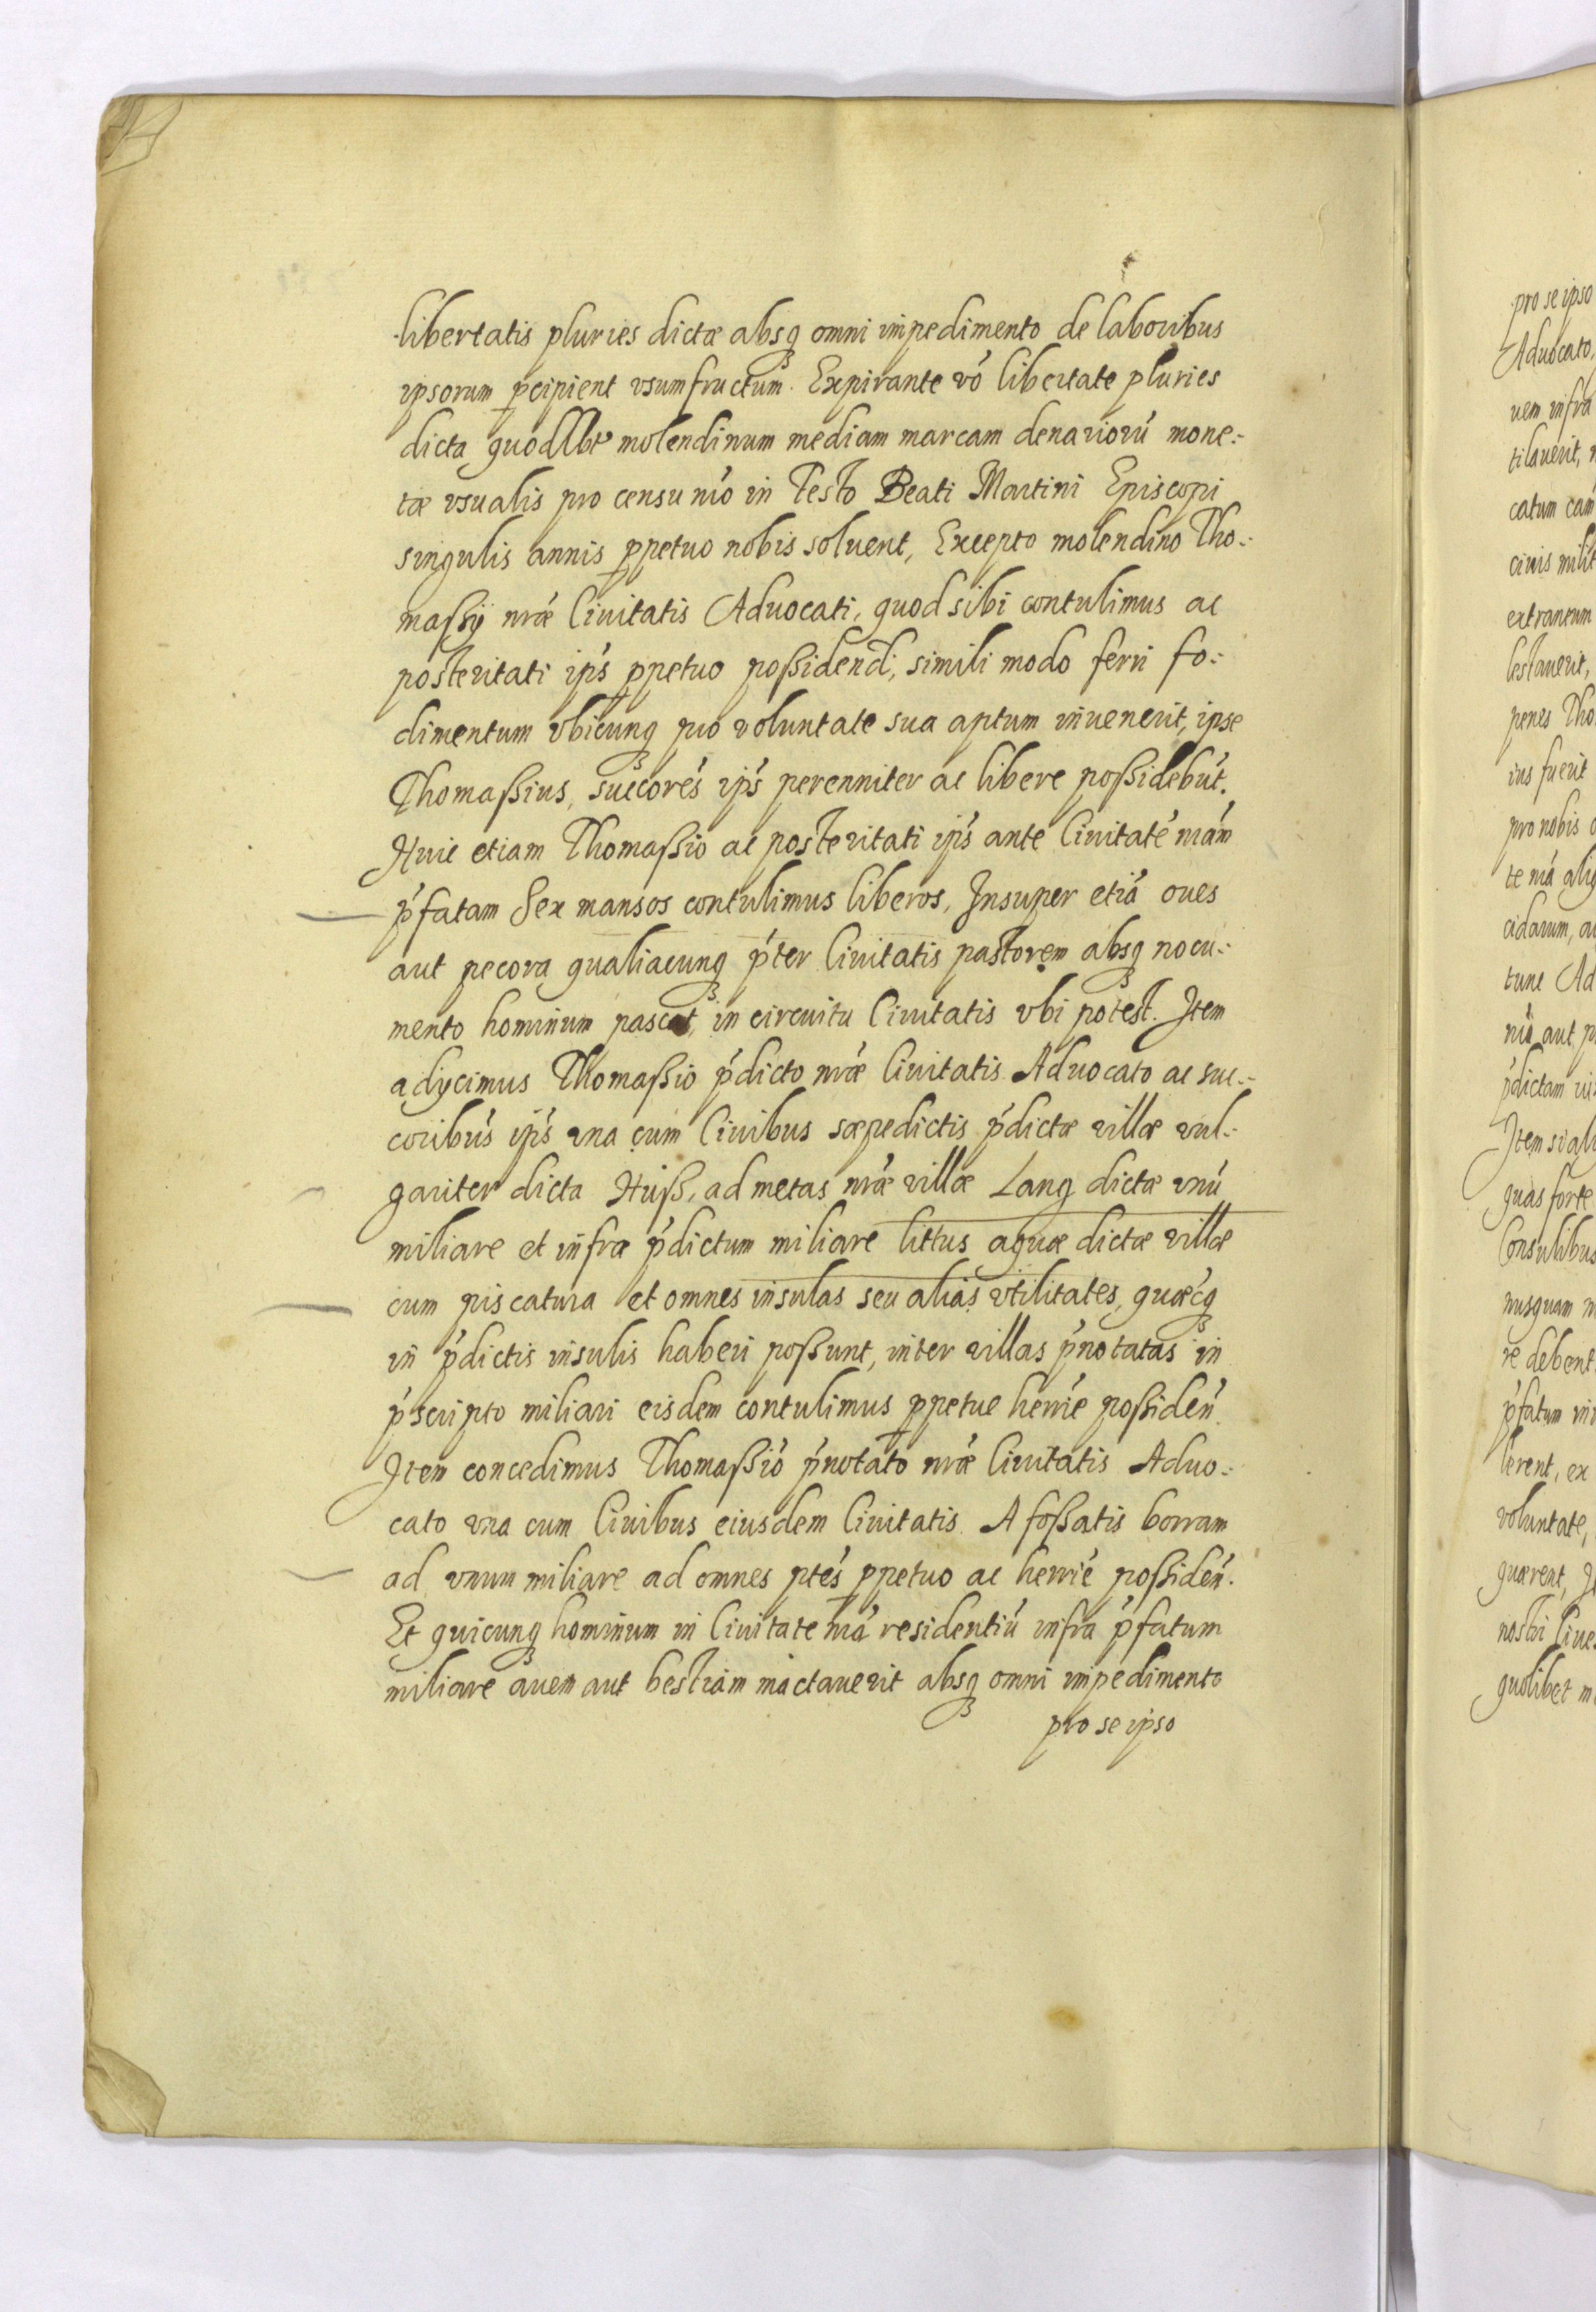 libertatis pluries dictæ absq₃ omni impedimento de laboribus
ipsorum ꝑcipient vsumfructum. Expirante vo᷉ libertate pluries
dicta quodlibt molendinum mediam marcam denarioru᷉ mone:
tæ vsualis pro censu nr᷉o in Festo Beati Martini Episcopi
singulis annis ꝑpetuo nobis soluent, Excepto molendino Tho:
maßij nr᷉æ Ciuitatis Aduocati, quod sibi contulimus ac
posteritati ip᷉s ꝑpetuo poßidend᷉, simili modo ferri fo:
dimentum vbicunq₃ pro voluntate sua aptum inuenerit, ipse
Thomaßius, succores᷉ ip᷉s perenniter ac libere poßidebu᷉t.
Huic etiam Thomaßio ac posteritati ip᷉s ante Ciuitate᷉ nr᷉am
p᷉fatam Sex mansos contulimus liberos, Insuper etia᷉ oues
aut pecora qualiacunq₃ p᷉ter Ciuitatis pastorem absq₃ nocu:
mento hominum pascat, in circuitu Ciuitatis vbi potest. Item
adijcimus Thomaßio p᷉dicto nr᷉æ Ciuitatis Aduocato ac suc:
coribus᷉ ip᷉s vna cum Ciuibus sæpedictis p᷉dictæ villæ vul:
gariter dicta Huß, ad metas nr᷉æ villæ Lang dictæ vnu᷉
miliare et infra p᷉dictum miliare littus aquæ dictæ villæ
cum piscatura et omnes insulas seu alias vtilitates, quæc᷉q₃
in p᷉dictis insulis haberi poßunt, inter villas p᷉notatas in
p᷉scripto miliari eisdem contulimus ꝑpetue herrie᷉ poßiden᷉.
Item concedimus Thomaßio p᷉notato nr᷉æ Ciuitatis Aduo:
cato vna cum Ciuibus eiusdem Ciuitatis A foßatis borram
ad vnum miliare ad omnes ptes᷉ ꝑpetuo ac herrie᷉ poßiden᷉.
Et quicunq₃ hominum in Ciuitate nr᷉a residentiu᷉ infra p᷉fatum
miliare auem aut bestiam mactauerit absq₃ omni impedimento
pro se ipso